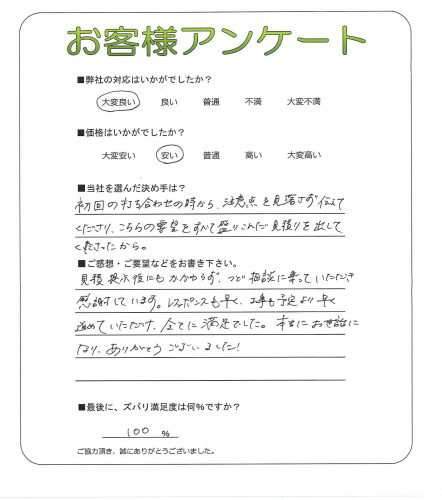 お客様アンケート
■弊社の対応はいかがでしたか？
大変良い 良い 普通 不満 大変不満
■価格はいかがでしたか？
大変安い 安い 普通 高い 大変高い
■当社を選んだ決め手は？
初回の打ち合わせの時から、注意点を見落さず伝えて
くださり、こちらの要望をすべて盛りこんだ見積りを出して
くださったから。
■ご感想・ご要望などをお書き下さい。
見積提示後にもかかわらず、つど相談に乗っていただき
感謝しています。レスポンスも早く、工事も予定より早く
進めていただけ、全てに満足でした。本当にお世話に
なり、ありがとうございました!
■最後に、ズバリ満足度は何%ですか？
100 %
ご協力頂き、誠にありがとうございました。